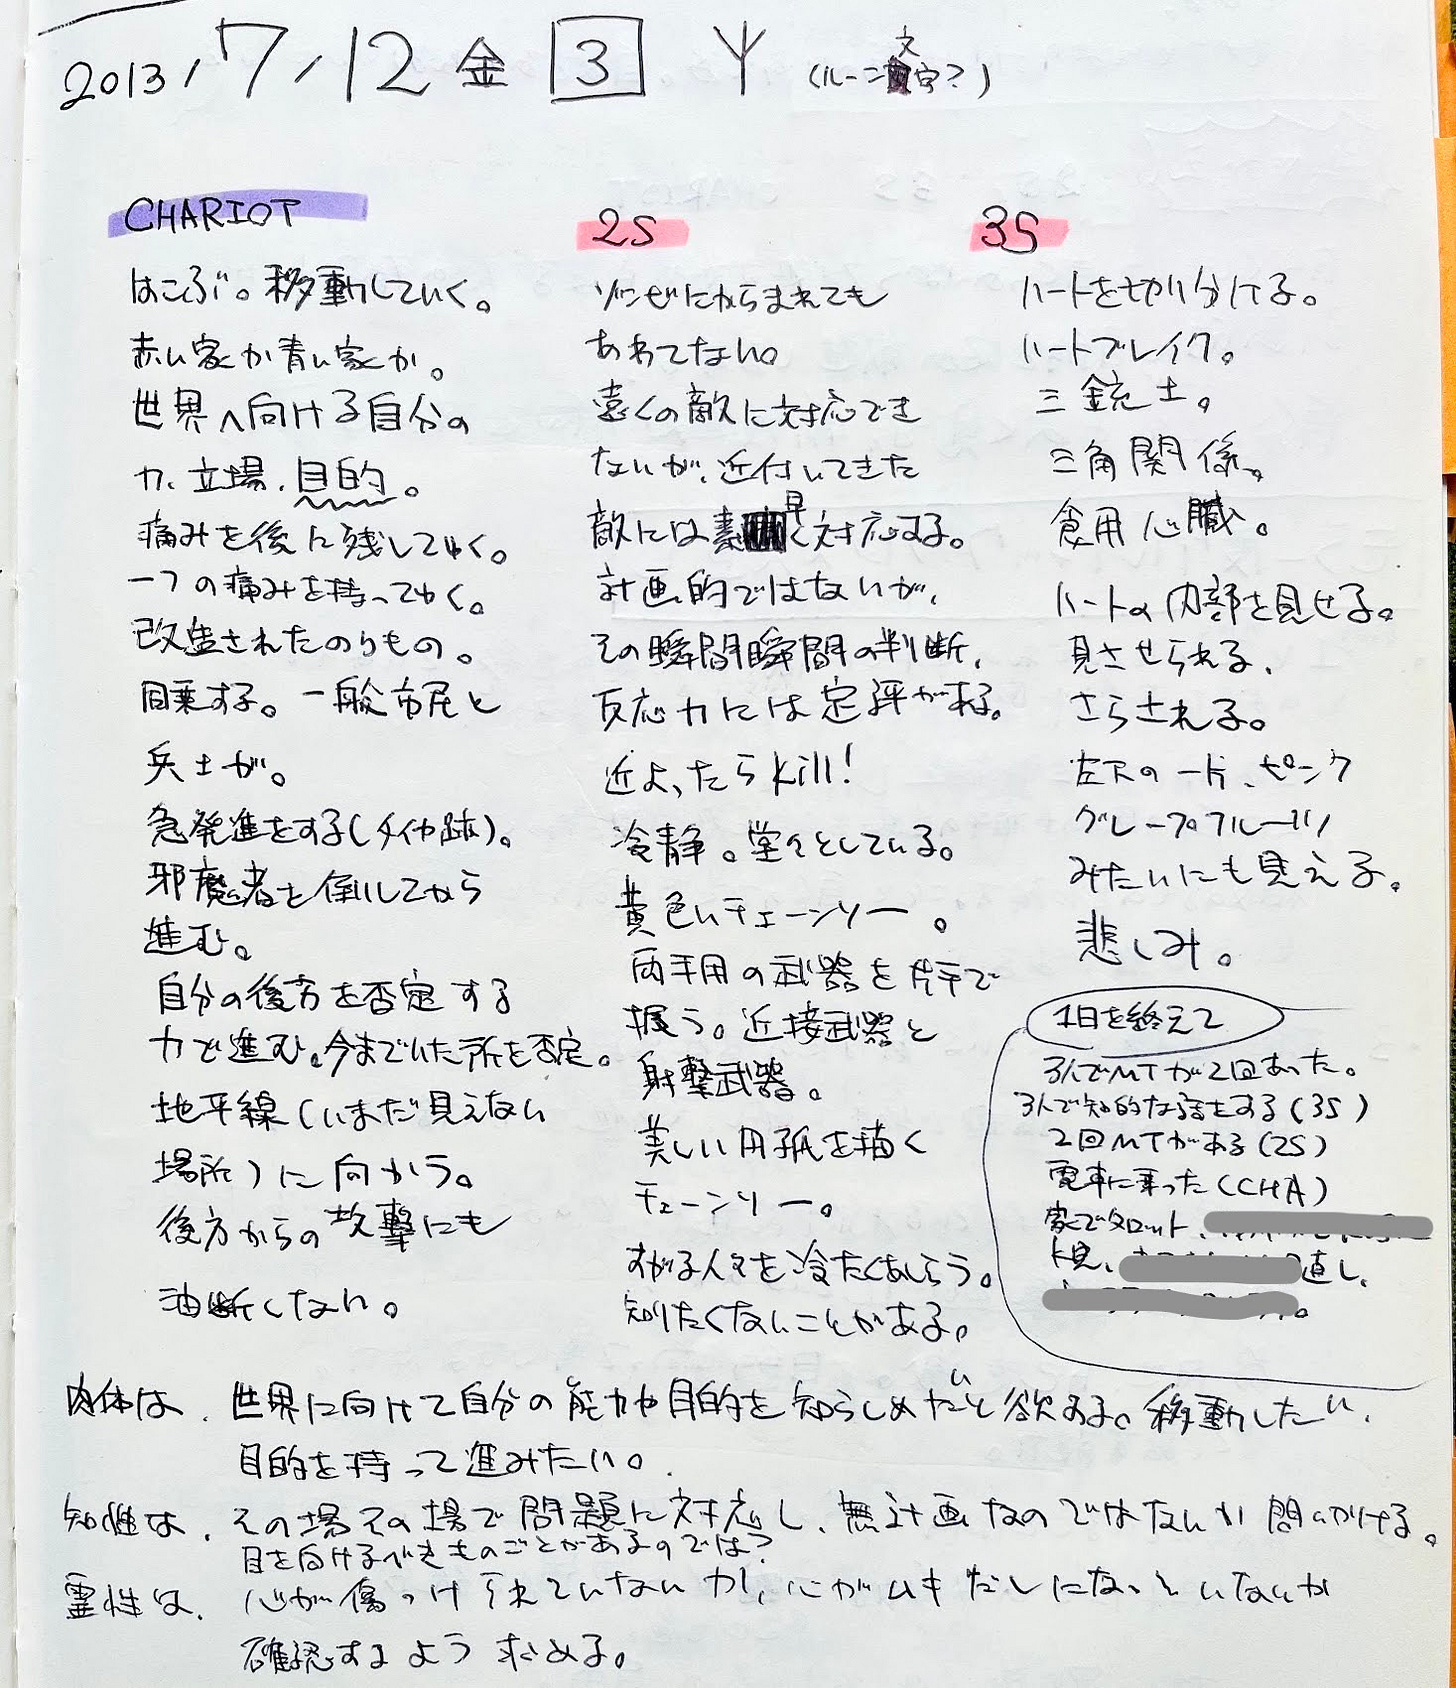 2013, 7, 12 金 3 (ルーン文字?)
CHARIOT
はこぶ。移動していく。
赤い家か青い家か。
世界へ向ける自分の
力、立場、目的。
痛みを後に残してゆく。
一つの痛みを持ってゆく。
改造されたのりもの。
同乗する。一般市民と
兵士が。
急発進をする(タイヤ跡)。
邪魔者を倒してから
進む。
自分の後方を否定する
力で進む。今までいた所を否定。
地平線(いまだ見えない
場所)に向かう。
後方からの攻撃にも
油断しない。
2S
ゾンビにからまれても
あわてない。
遠くの敵に対応でき
ないが、近付いてきた
敵には素早く対応する。
計画的ではないが、
その瞬間瞬間の判断、
反応力には定評がある。
近よったらkill!
冷静。堂々としている。
黄色いチェーンソー。
両手用の武器を片手で
握る。近接武器と
射撃武器。
美しい円弧を描く
チェーンソー。
すがる人々を冷たくあしらう。
知りたくないことがある。
3S
ハートを切り分ける。
ハートブレイク。
三銃士。
三角関係。
食用心臓。
ハートの内部を見せる。
見させられる、
さらされる。
左下の一片、ピンク
グレープフルーツ
みたいにも見える。
悲しみ。
1日を終えて
3人でMTが2回あった。
3人で知的な話をする(3S)
2回MTがある(2S)
電車に乗った(CHA)
家でタロット、
直し、
肉体は、世界に向けて自分の能力や目的を知らしめたいと欲する。移動したい、
目的を持って進みたい。
知性は、その場その場で問題に対応し、無計画なのではないか問いかける。
目を向けるべきものごとがあるのでは?
霊性は、心が傷つけられていないか、心がムキだしになっていないか
確認するよう求める。